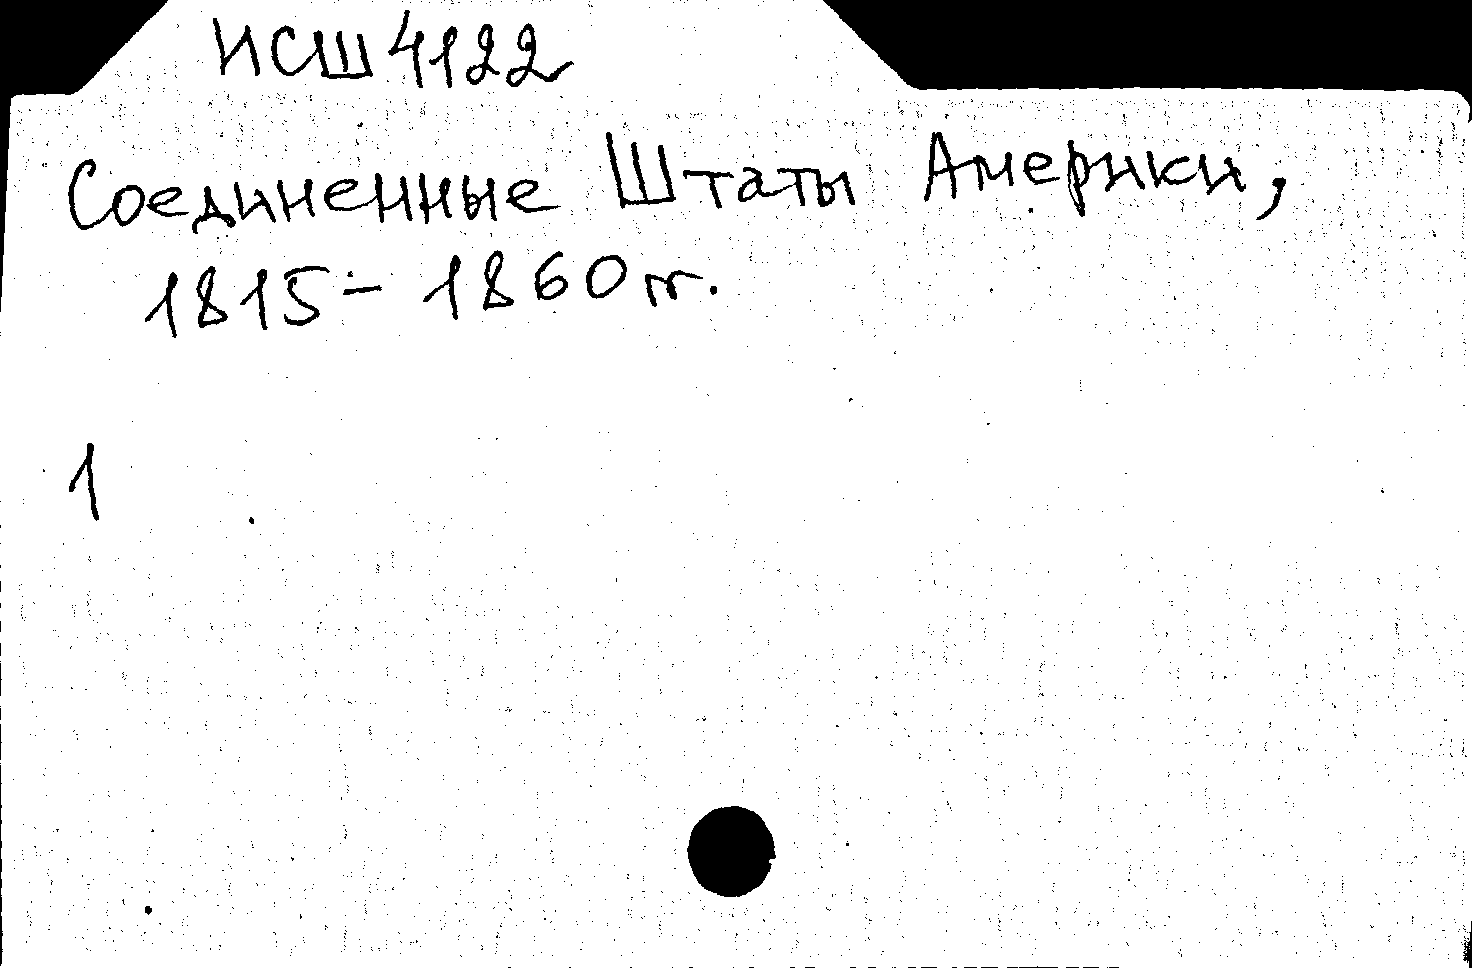 ИСШ 4122
Соединенные Штаты Америки,
1815 - 1860 гг.
1